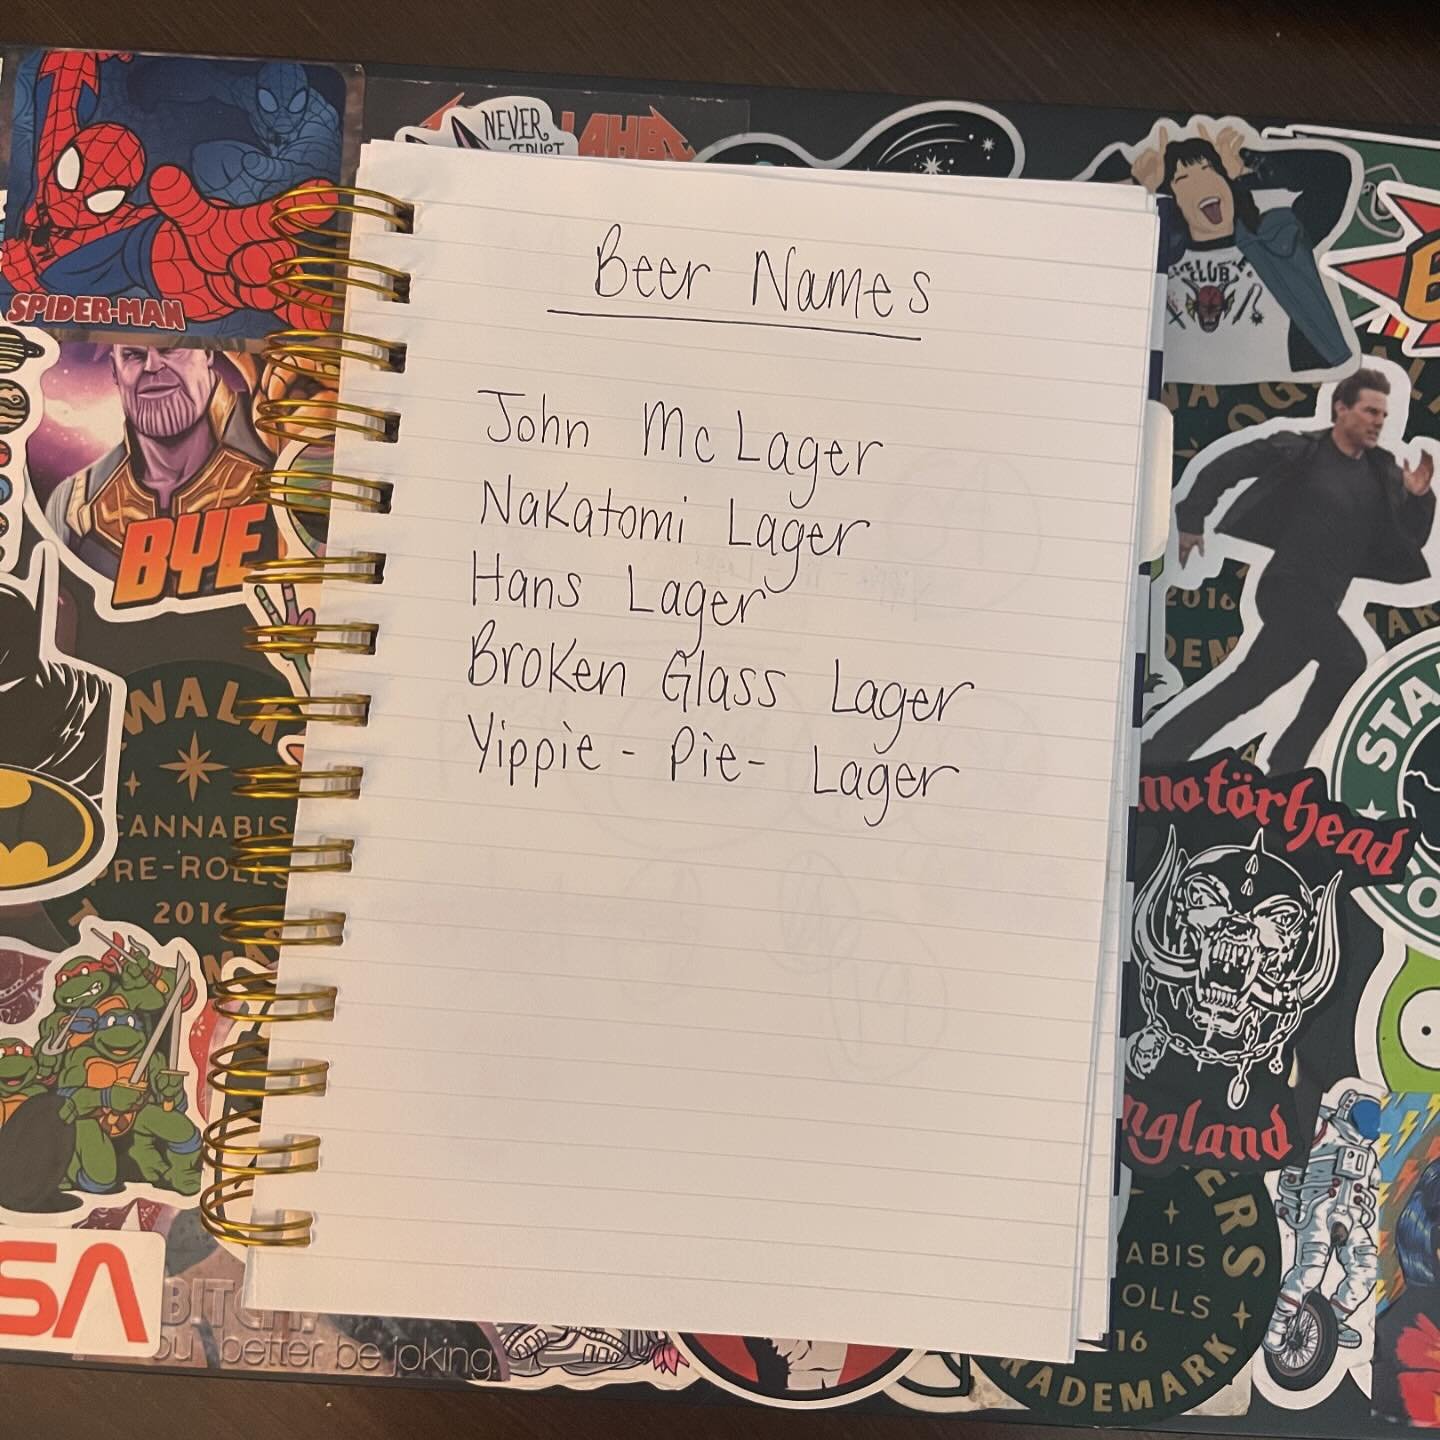 Beer Names
John McLager
Nakatomi Lager
Hans Lager
Broken Glass Lager
Yippie - Pie - Lager
NEVER
TRUST
SPIDER-MAN
BYE
WALK
CANNABIS
PRE-ROLLS
2016
CLUB
2016
STA
motörhead
England
ERS
ABIS
OLLS
16
TRADEMARK
SA
BITCH.
you better be joking.